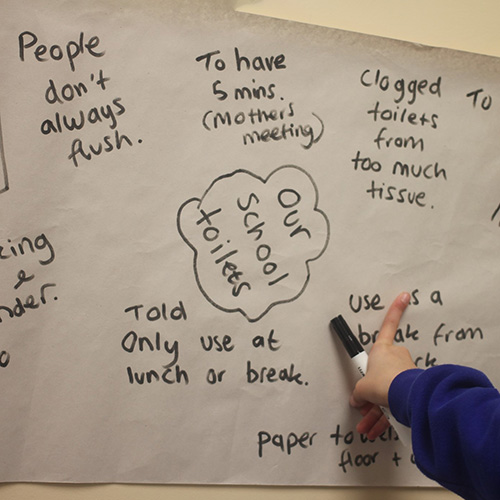 People
don't
always
flush.
To have
5 mins.
(Mothers
meeting)
Clogged
toilets
from
too much
tissue.
To
Our
School
toilets
Told
Only use at
lunch or break.
use as a
break from
paper
floor +